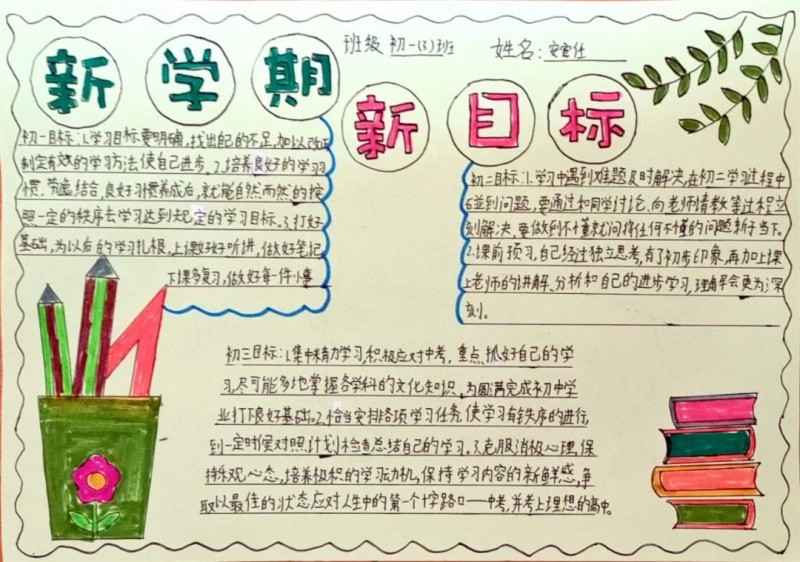 新学期
班级 初一(3)班 姓名:安
新目标
初一目标:1.学习目标要明确,找出自己的不足,加以改正
制定有效的学习方法,使自己进步。2.培养良好的学习习
惯。劳逸结合,良好习惯养成后,就能自然而然的按
照一定的秩序去学习达到规定的学习目标。3.打好
基础,为以后的学习扎根,上课好好听讲,做好笔记
下课多复习,做好每一件小事
初二目标:1.学习中遇到难题及时解决,在初二学习过程中
碰到问题,要通过和同学讨论、向老师请教等过程立
刻解决,要做到不懂就问将任何不懂的问题斩于当下。
2.课前预习,自己经过独立思考,有了初步印象,再加上课
上老师的讲解、分析和自己的进步学习,理解早会更为深
刻。
初三目标:1.集中精力学习,积极应对中考,重点抓好自己的学
习,尽可能多地掌握各学科的文化知识,为圆满完成初中学
业打下良好基础。2.恰当安排各项学习任务,使学习有秩序的进行
到一定时候对照计划检查总结自己的学习。3.克服消极心理,保
持乐观心态,培养积极的学习动机,保持学习内容的新鲜感,争
取以最佳的状态应对人生中的第一个十字路口——中考,并考上理想的高中。